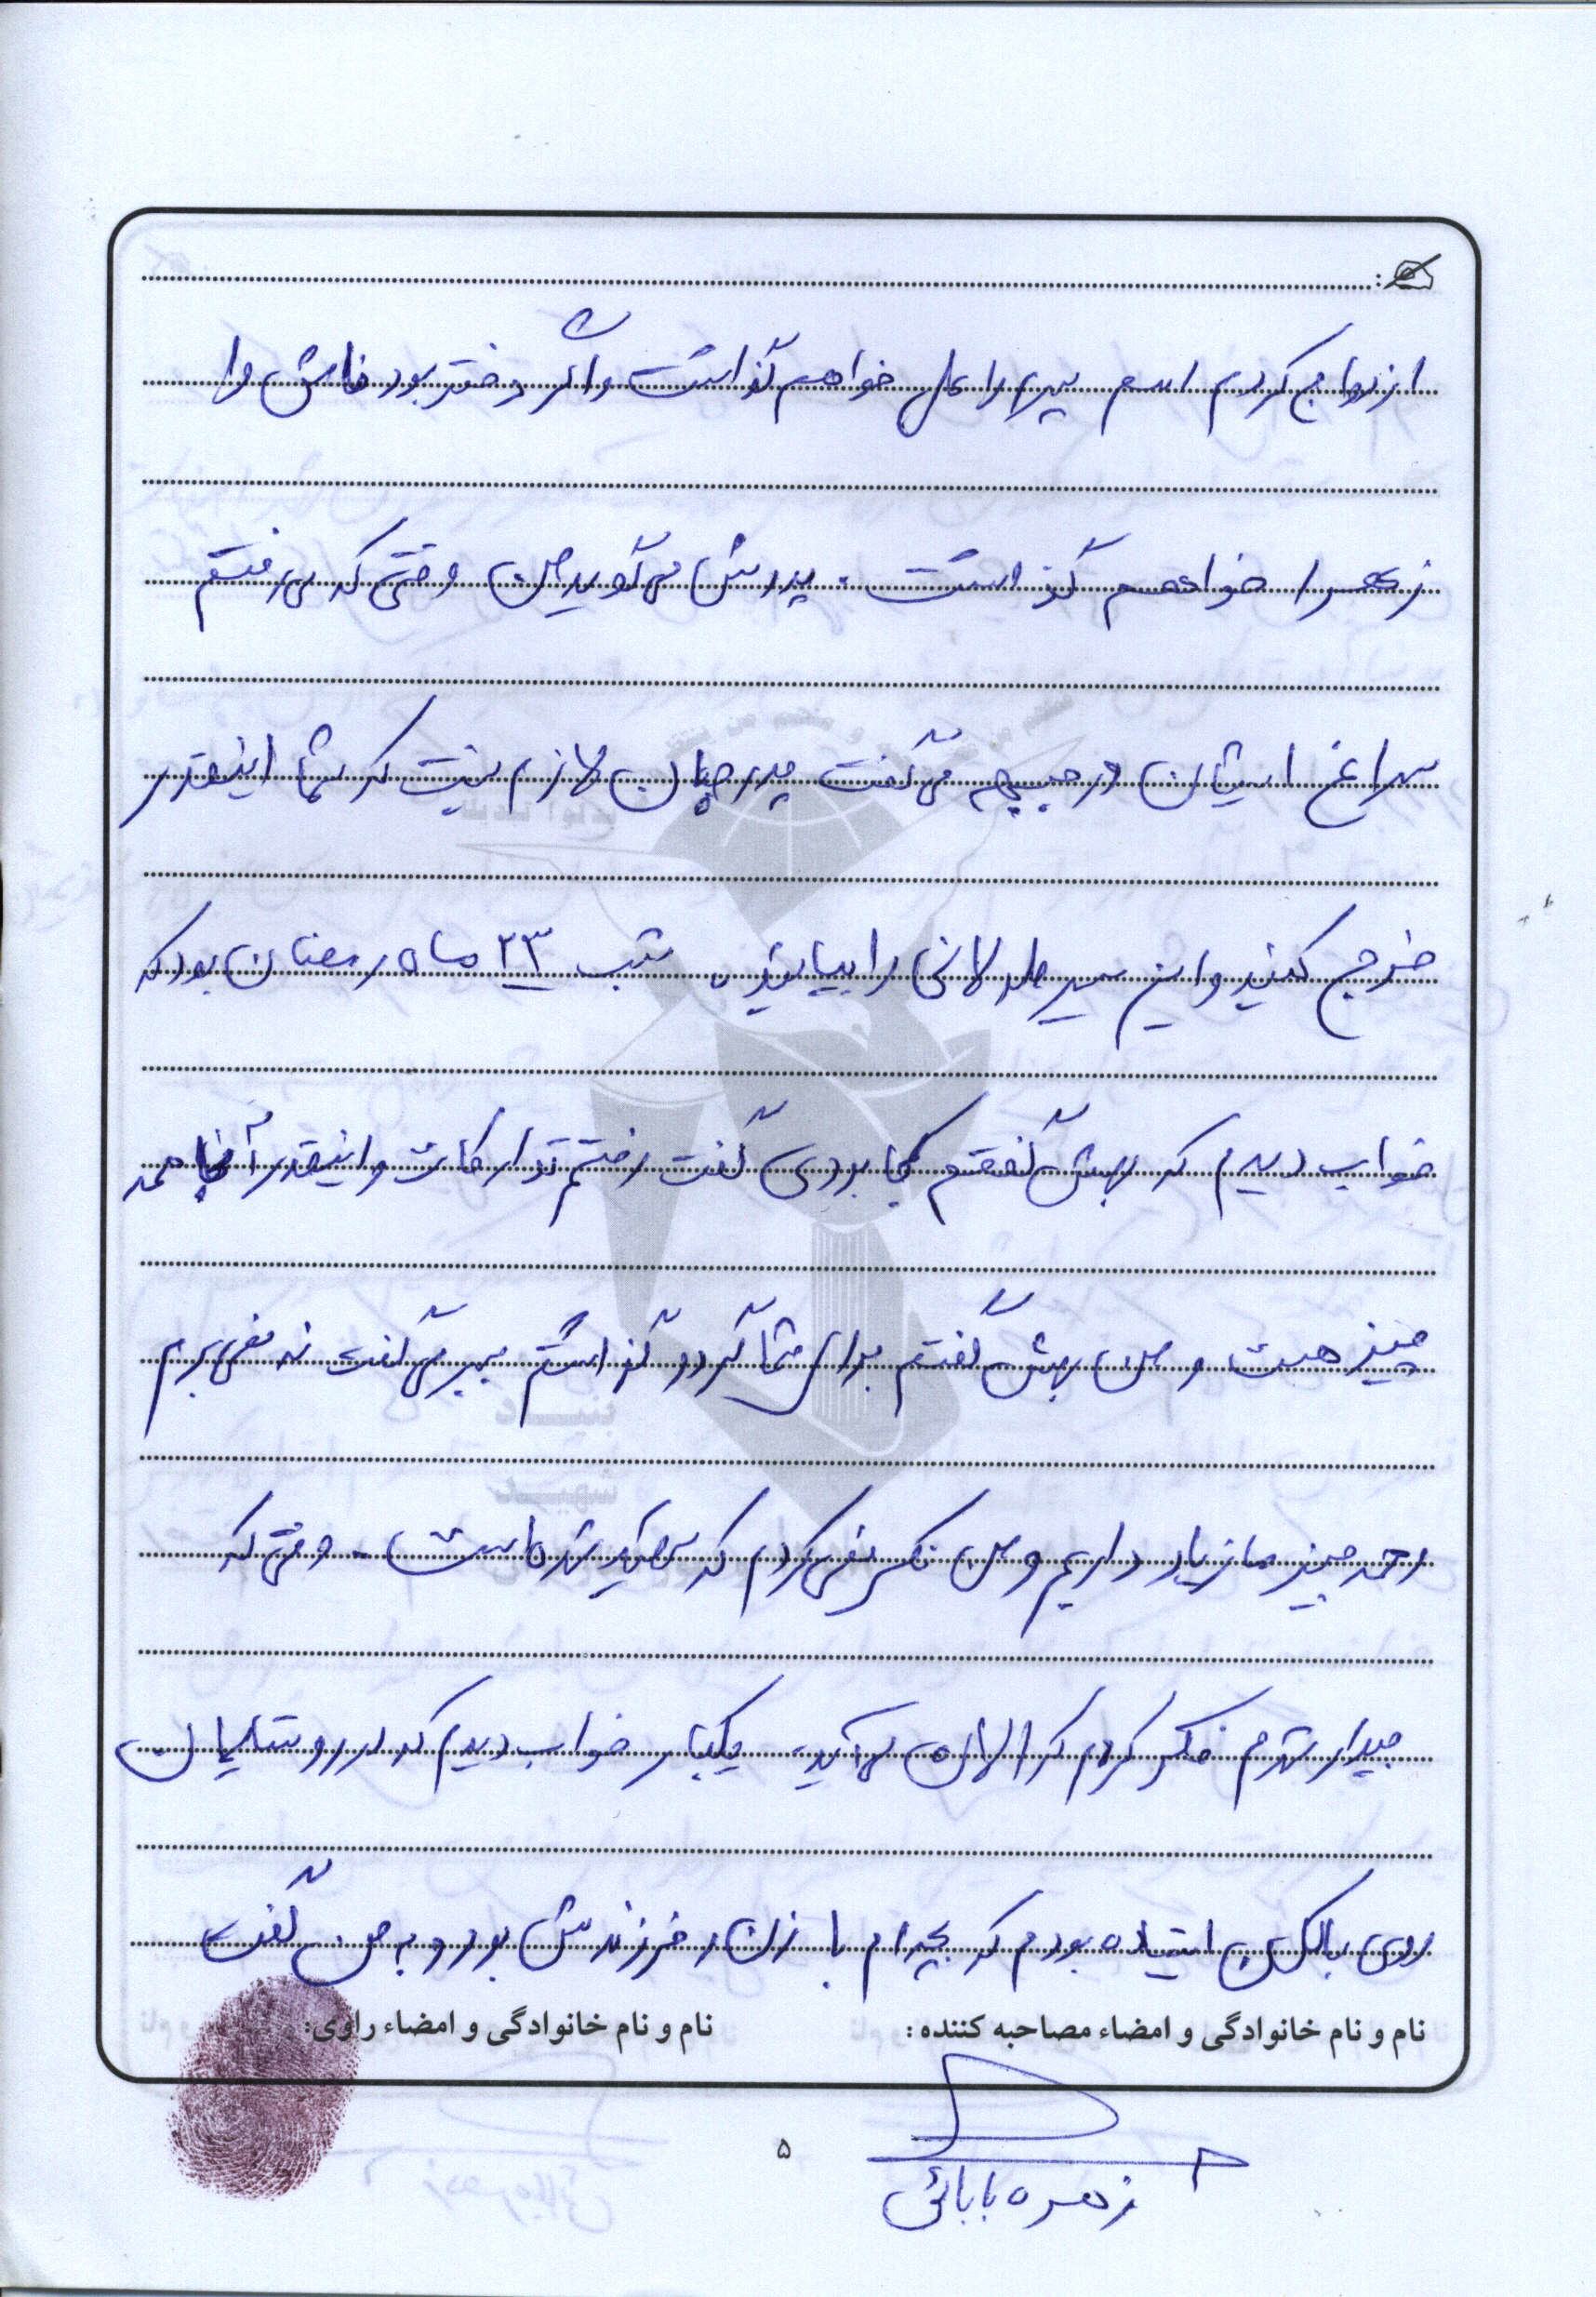 ازدواج کردم اسم پسرم را علی خواهم گذاشت و اگر دختر بود فامش را
زهرا خواهم گذاشت . پدرش می گوید من وقتی که می رفتم
سراغ ایشان در جبهه می گفت پدر جان لازم نیست که شما اینقدر
خرج کنید و این مسیر طولانی را بیایید . شب ۲۳ ماه رمضان بود که
خواب دیدم که بهش گفتم کجا بودی گفت رفتم تدارکات و اینقدر آنجا همه
چیز هست و من بهش گفتم برای شما گردو گذاشتم ببر می گفت نه نمی برم
همه چیز ما زیاد داریم و من فکر نمی کردم که شهید شده است . وقتی که
بیدار شدم فکر کردم که الان می آید . یکبار خواب دیدم که در روستایمان
روی بالکن ایستاده بودم که بچه ام با زن و فرزندش بود و به من گفت
نام و نام خانوادگی و امضاء مصاحبه کننده : نام و نام خانوادگی و امضاء راوی:
زهره بابائی
۵